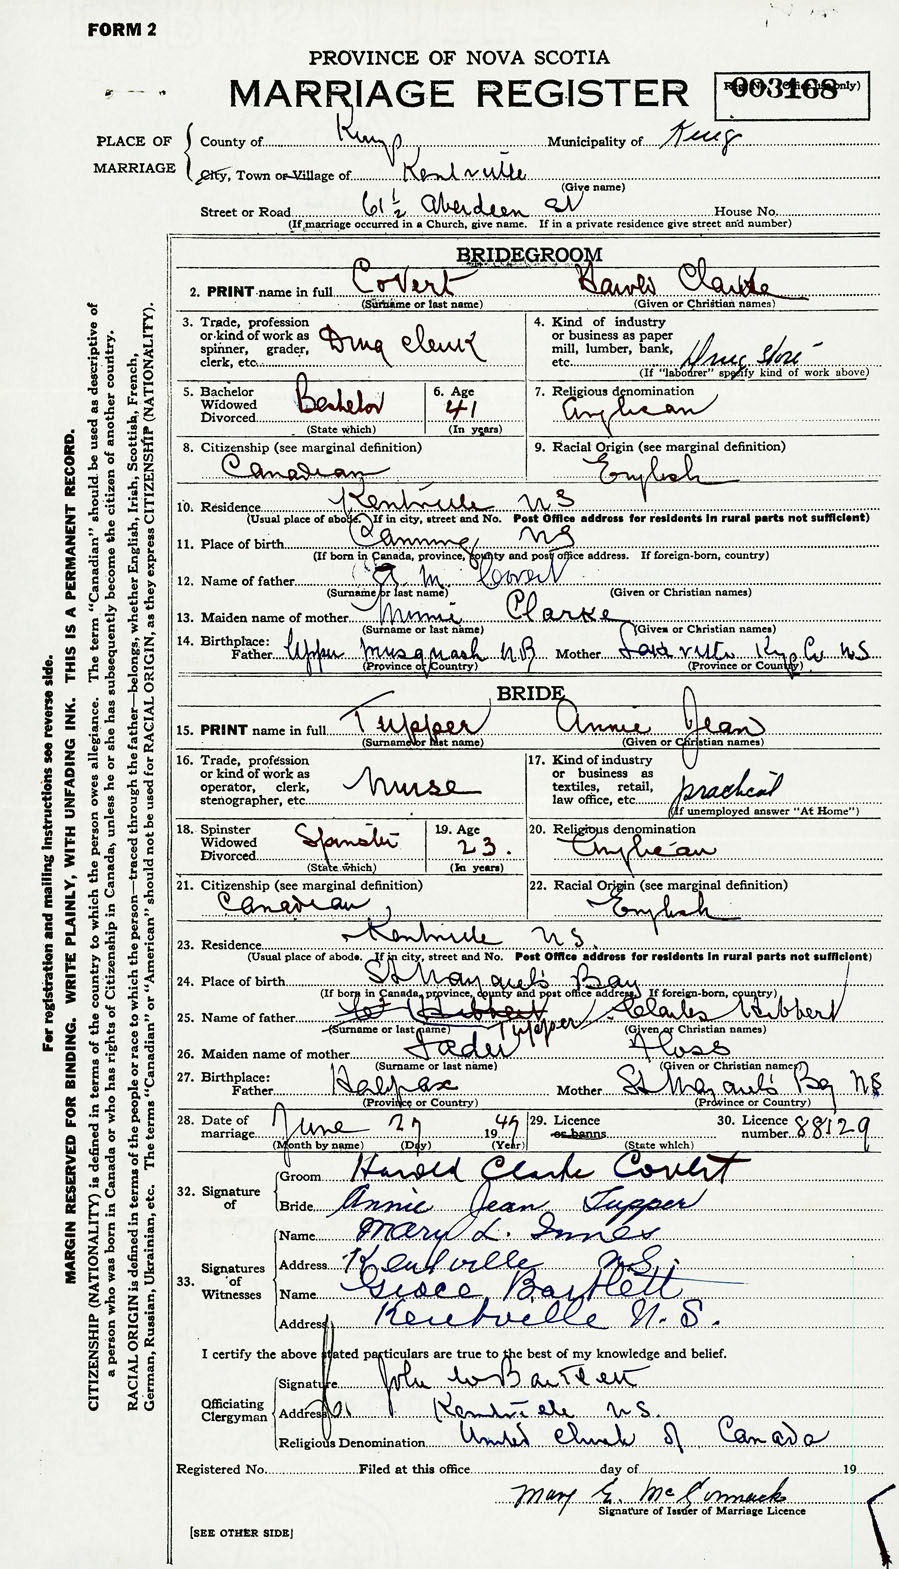 FORM 2
PROVINCE OF NOVA SCOTIA
MARRIAGE REGISTER
003168
PLACE OF MARRIAGE
County of Kings Municipality of Kings
City, Town or Village of Kentville
(Give name)
Street or Road 61½ Aberdeen St House No.
(If marriage occurred in a Church, give name. If in a private residence give street and number)
BRIDEGROOM
2. PRINT name in full Covert Harold Clarke
(Surname or last name) (Given or Christian names)
3. Trade, profession or kind of work as spinner, grader, clerk, etc. Drug clerk
4. Kind of industry or business as paper mill, lumber, bank, etc. Drug Store
(If "labourer" specify kind of work above)
5. Bachelor Widowed Divorced Bachelor
(State which)
6. Age 41
(In years)
7. Religious denomination
Anglican
8. Citizenship (see marginal definition)
Canadian
9. Racial Origin (see marginal definition)
English
10. Residence Kentville N S
(Usual place of abode. If in city, street and No. Post Office address for residents in rural parts not sufficient)
11. Place of birth Canning NS
(If born in Canada, province, county and post office address. If foreign-born, country)
12. Name of father A. M. Covert
(Surname or last name) (Given or Christian names)
13. Maiden name of mother Minnie Clarke
(Surname or last name) (Given or Christian names)
14. Birthplace: Father Upper Musquash NB Mother Kgs Co N S
(Province or Country) (Province or Country)
BRIDE
15. PRINT name in full Tupper Annie Jean
(Surname or last name) (Given or Christian names)
16. Trade, profession or kind of work as operator, clerk, stenographer, etc. Nurse
17. Kind of industry or business as textiles, retail, law office, etc. practical
(If unemployed answer "At Home")
18. Spinster Widowed Divorced Spinster
(State which)
19. Age 23.
(In years)
20. Religious denomination
Anglican
21. Citizenship (see marginal definition)
Canadian
22. Racial Origin (see marginal definition)
English
23. Residence Kentville N.S.
(Usual place of abode. If in city, street and No. Post Office address for residents in rural parts not sufficient)
24. Place of birth St Margaret's Bay
(If born in Canada, province, county and post office address. If foreign-born, country)
25. Name of father Hibbert Tupper Charles Hibbert
(Surname or last name) (Given or Christian names)
26. Maiden name of mother
(Surname or last name) (Given or Christian names)
27. Birthplace: Father Halifax Mother St Margaret's Bay NS
(Province or Country) (Province or Country)
28. Date of marriage June 27 1949
(Month by name) (Day) (Year)
29. Licence or banns
(State which)
30. Licence number 88129
32. Signature of
Groom Harold Clarke Covert
Bride Annie Jean Tupper
33. Signatures of Witnesses
Name Mary L. Innes
Address Kentville N.S.
Name Grace Bartlett
Address Kentville N.S.
I certify the above stated particulars are true to the best of my knowledge and belief.
Officiating Clergyman
Signature John W Bartlett
Address Kentville N.S.
Religious Denomination United Church of Canada
Registered No. Filed at this office day of 19
Mary E. McCormack
Signature of Issuer of Marriage Licence
[SEE OTHER SIDE]
For registration and mailing instructions see reverse side.
MARGIN RESERVED FOR BINDING. WRITE PLAINLY, WITH UNFADING INK. THIS IS A PERMANENT RECORD.
CITIZENSHIP (NATIONALITY) is defined in terms of the country to which the person owes allegiance. The term "Canadian" should be used as descriptive of
a person who was born in Canada or who has rights of Citizenship in Canada, unless he or she has subsequently become the citizen of another country.
RACIAL ORIGIN is defined in terms of the people or race to which the person—traced through the father—belongs, whether English, Irish, Scottish, French,
German, Russian, Ukrainian, etc. The terms "Canadian" or "American" should not be used for RACIAL ORIGIN, as they express CITIZENSHIP (NATIONALITY).